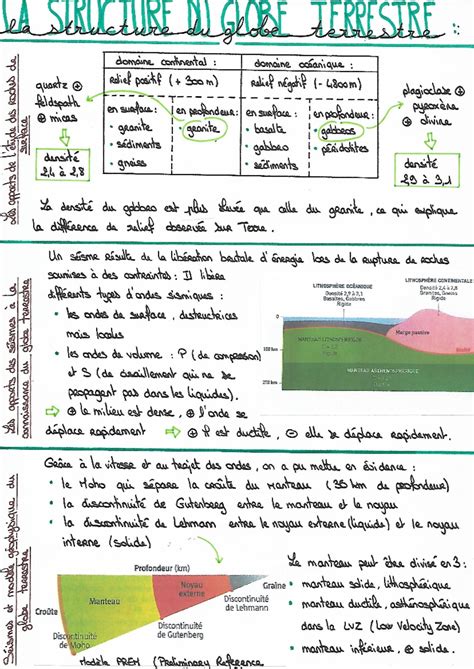 LA STRUCTURE DU GLOBE TERRESTRE
La structure du globe terrestre :
Les apports de l'étude des roches de surface
quartz ⊕
feldspath ⊕
micas
densité
2,4 à 2,8
domaine continental :
domaine océanique :
relief positif (+ 300 m)
Relief négatif (- 4800 m)
en surface :
• granite
• sédiments
• gneiss
en profondeur :
• granite
en surface :
• basalte
• gabbro
• sédiments
en profondeur :
• gabbros
• péridotites
plagioclase ⊕
pyroxène ⊕
olivine
densité
2,9 à 3,1
La densité du gabbro est plus élevée que celle du granite, ce qui explique
la différence de relief observée sur Terre.
Les apports des séismes à la connaissance du globe terrestre
Un séisme résulte de la libération brutale d'énergie lors de la rupture de roches
soumises à des contraintes : Il libère
différents types d'ondes sismiques :
• les ondes de surface, destructrices
mais locales
• les ondes de volume : P (de compression)
et S (de cisaillement qui ne se
propagent pas dans les liquides).
⇨ ⊕ le milieu est dense, ⊕ l'onde se
déplace rapidement ⇨ ⊕ il est ductile, ⊖ elle se déplace rapidement.
LITHOSPHÈRE OCÉANIQUE
Densité 2,9 à 3,1
Basaltes, Gabbros
Rigide
LITHOSPHÈRE CONTINENTALE
Densité 2,4 à 2,8
Granites, Gneiss
Rigide
Marge passive
MANTEAU LITHOSPHÉRIQUE
Rigide
MANTEAU ASTHÉNOSPHÉRIQUE
Séismes et modèle géophysique du globe terrestre
Grâce à la vitesse et au trajet des ondes, on a pu mettre en évidence :
• le Moho qui sépare la croûte du manteau (30 km de profondeur)
• la discontinuité de Gutenberg entre le manteau et le noyau
• la discontinuité de Lehmann entre noyau externe (liquide) et le noyau
interne (solide)
Profondeur (km)
Croûte
Manteau
Noyau
externe
Graine
Discontinuité
de Lehmann
Discontinuité
de Gutenberg
Discontinuité
de Moho
Modèle PREM (Preliminary Reference
Le manteau peut être divisé en 3 :
• manteau solide, lithosphérique
• manteau ductile, asthénosphérique
dans la LVZ (Low Velocity Zone)
• manteau inférieur, ⊕ solide.